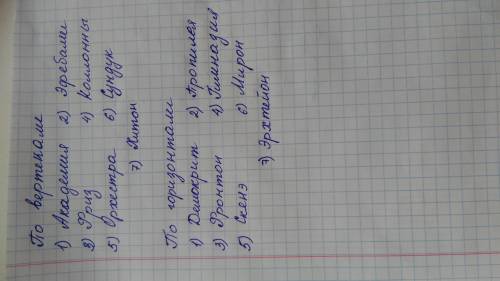 По вертекали
1) Академия 2) Эфебами
3) Фриз 4) Коллонны
5) Орхестра 6) Сундук
7) Хитон
По горизонтали
1) Демокрит 2) Пропилея
3) Фронтон 4) Гимнадия
5) Скенэ 6) Мирон
7) Эрхтейон